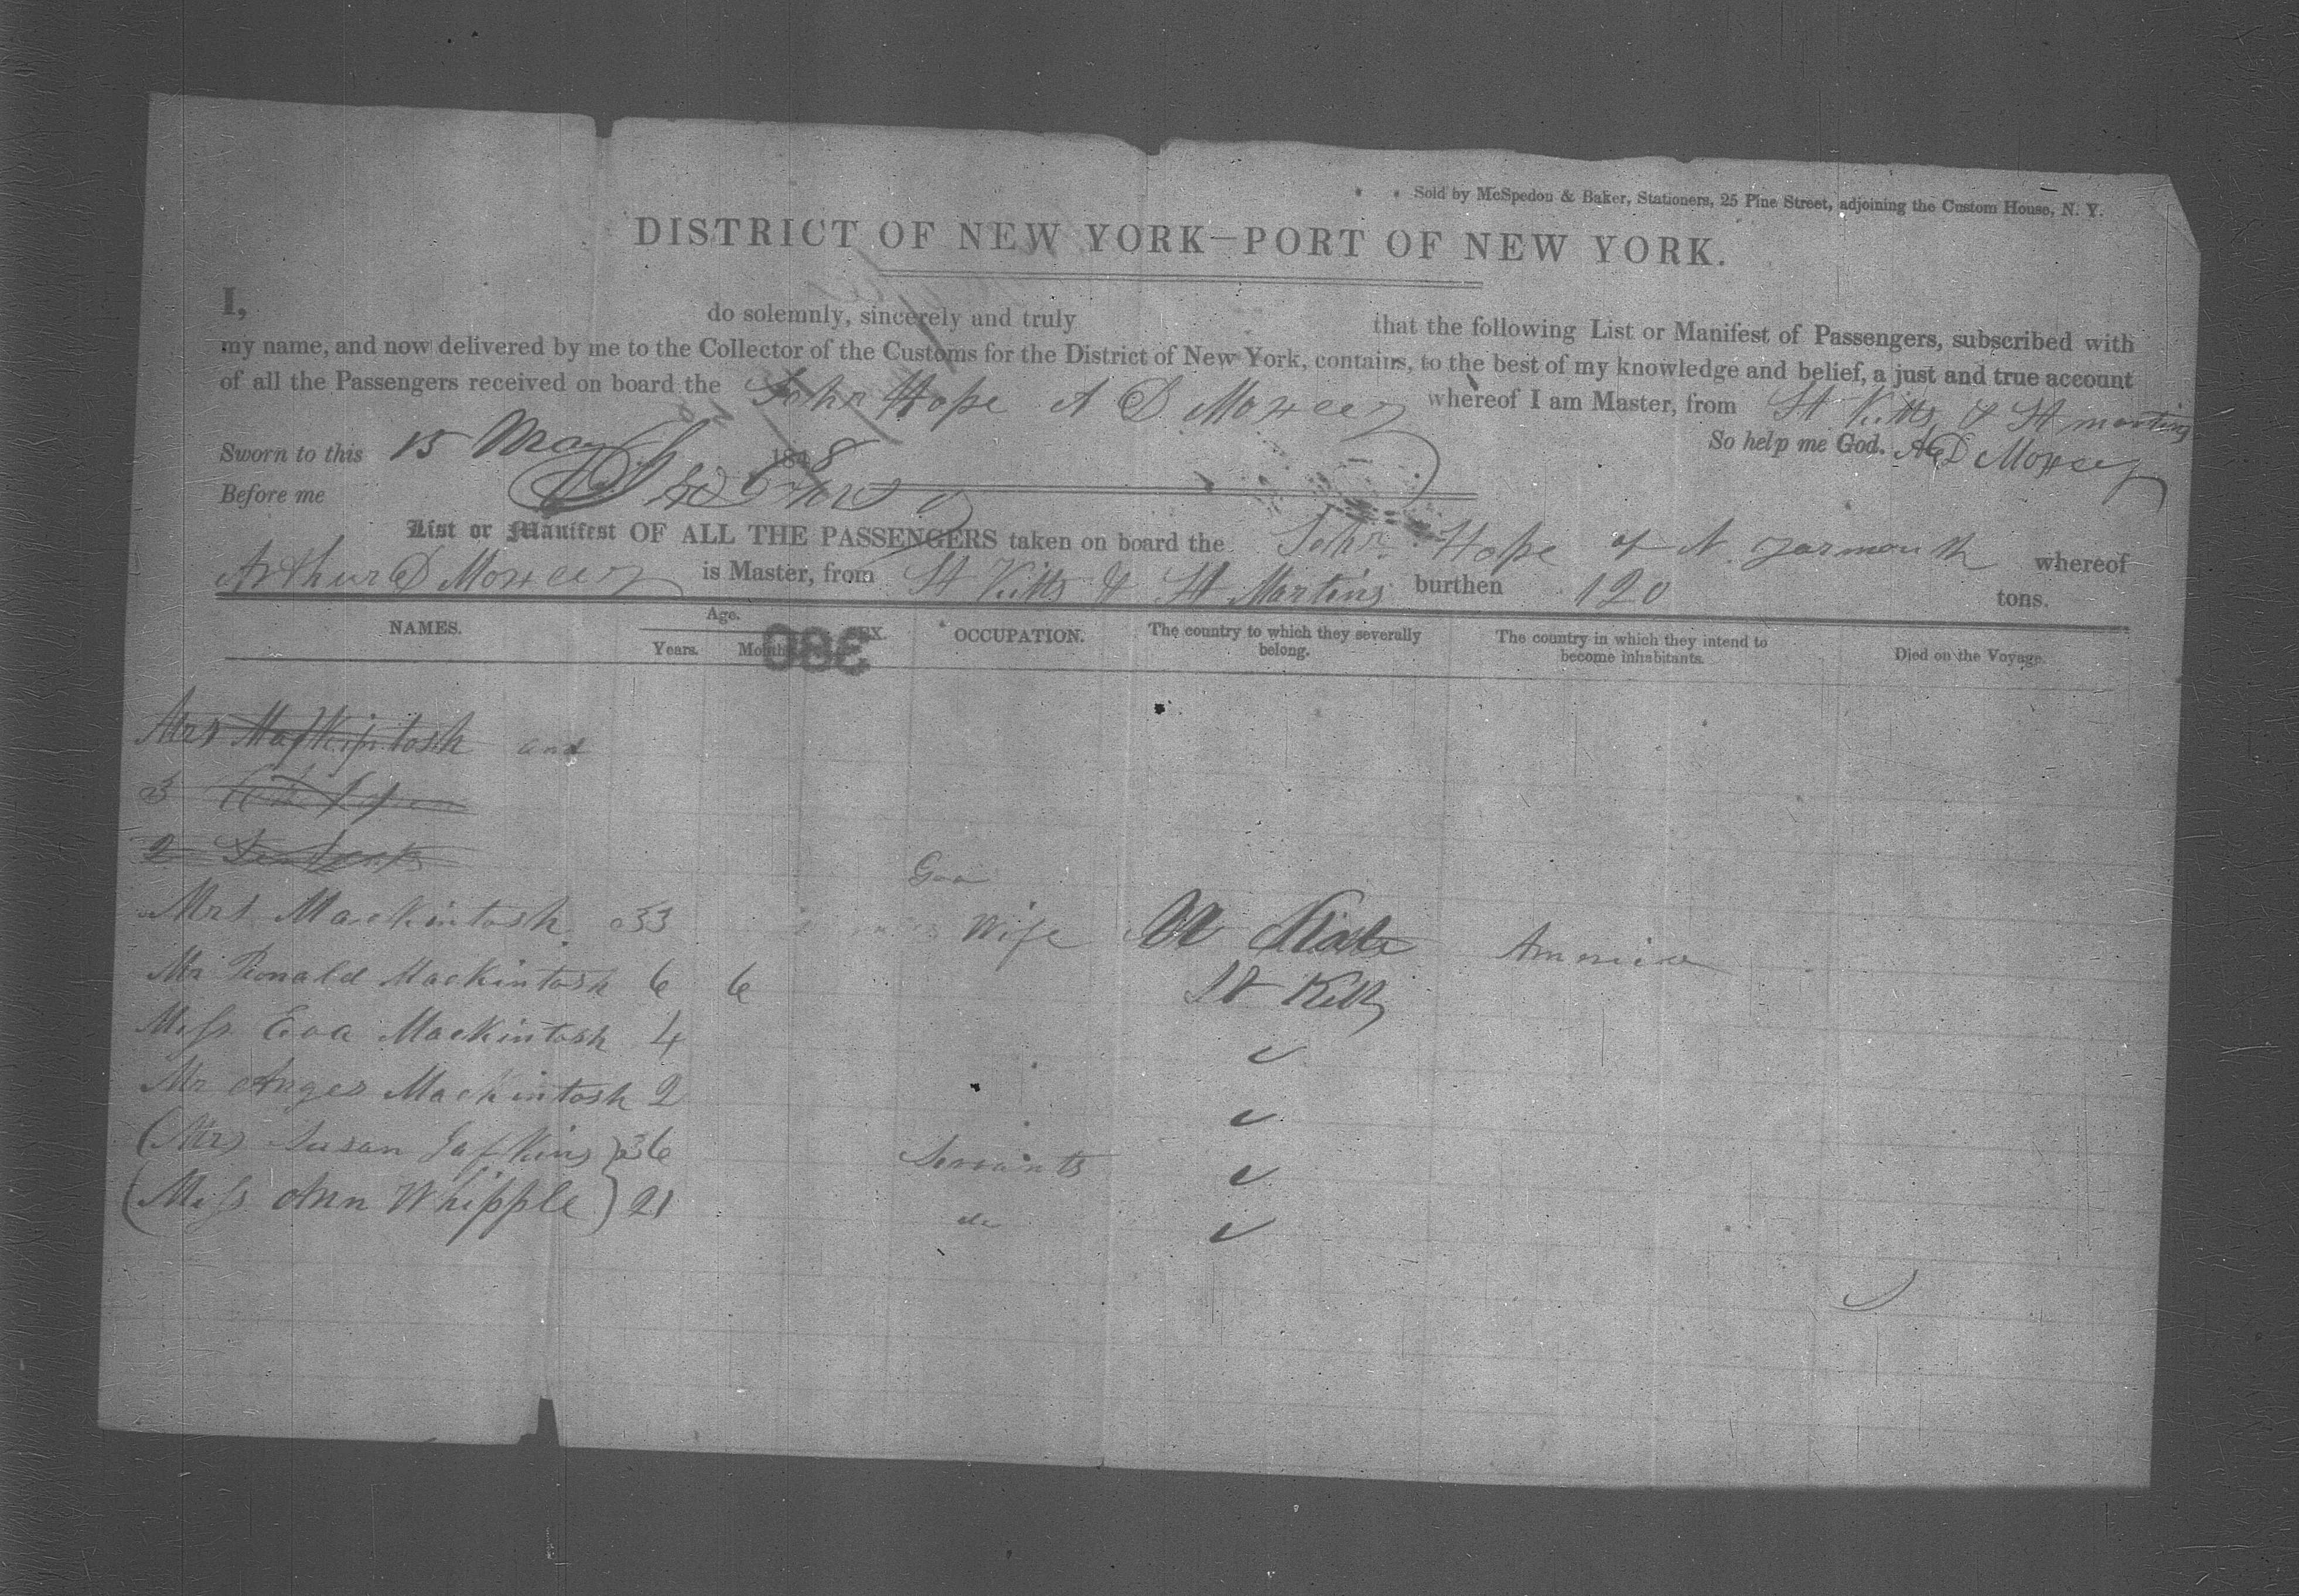 Sold by McSpedon & Baker, Stationers, 25 Pine Street, adjoining the Custom House, N. Y.
DISTRICT OF NEW YORK—PORT OF NEW YORK.
I, do solemnly, sincerely and truly that the following List or Manifest of Passengers, subscribed with
my name, and now delivered by me to the Collector of the Customs for the District of New York, contains, to the best of my knowledge and belief, a just and true account
of all the Passengers received on board the John Hope A D Moxcey whereof I am Master, from St Kitts & St martins
So help me God. A D Moxcey
Sworn to this 15 May 1848
Before me
List or Manifest OF ALL THE PASSENGERS taken on board the John Hope of N. yarmouth whereof
Arthur D Moxcey is Master, from St Kitts & St Martins burthen 120 tons.
NAMES. Age. SEX. OCCUPATION. The country to which they severally belong. The country in which they intend to become inhabitants. Died on the Voyage.
Years. Months
380
Mrs Mackintosh and
3
2
Mrs Mackintosh 33 Wife America
Mr Ronald Mackintosh 6 6 St Kitts
Miss Eva Mackintosh 4
Mr Anges Mackintosh 2
(Mrs Susan ) 36 Servants
(Miss Ann Whipple) 21 do